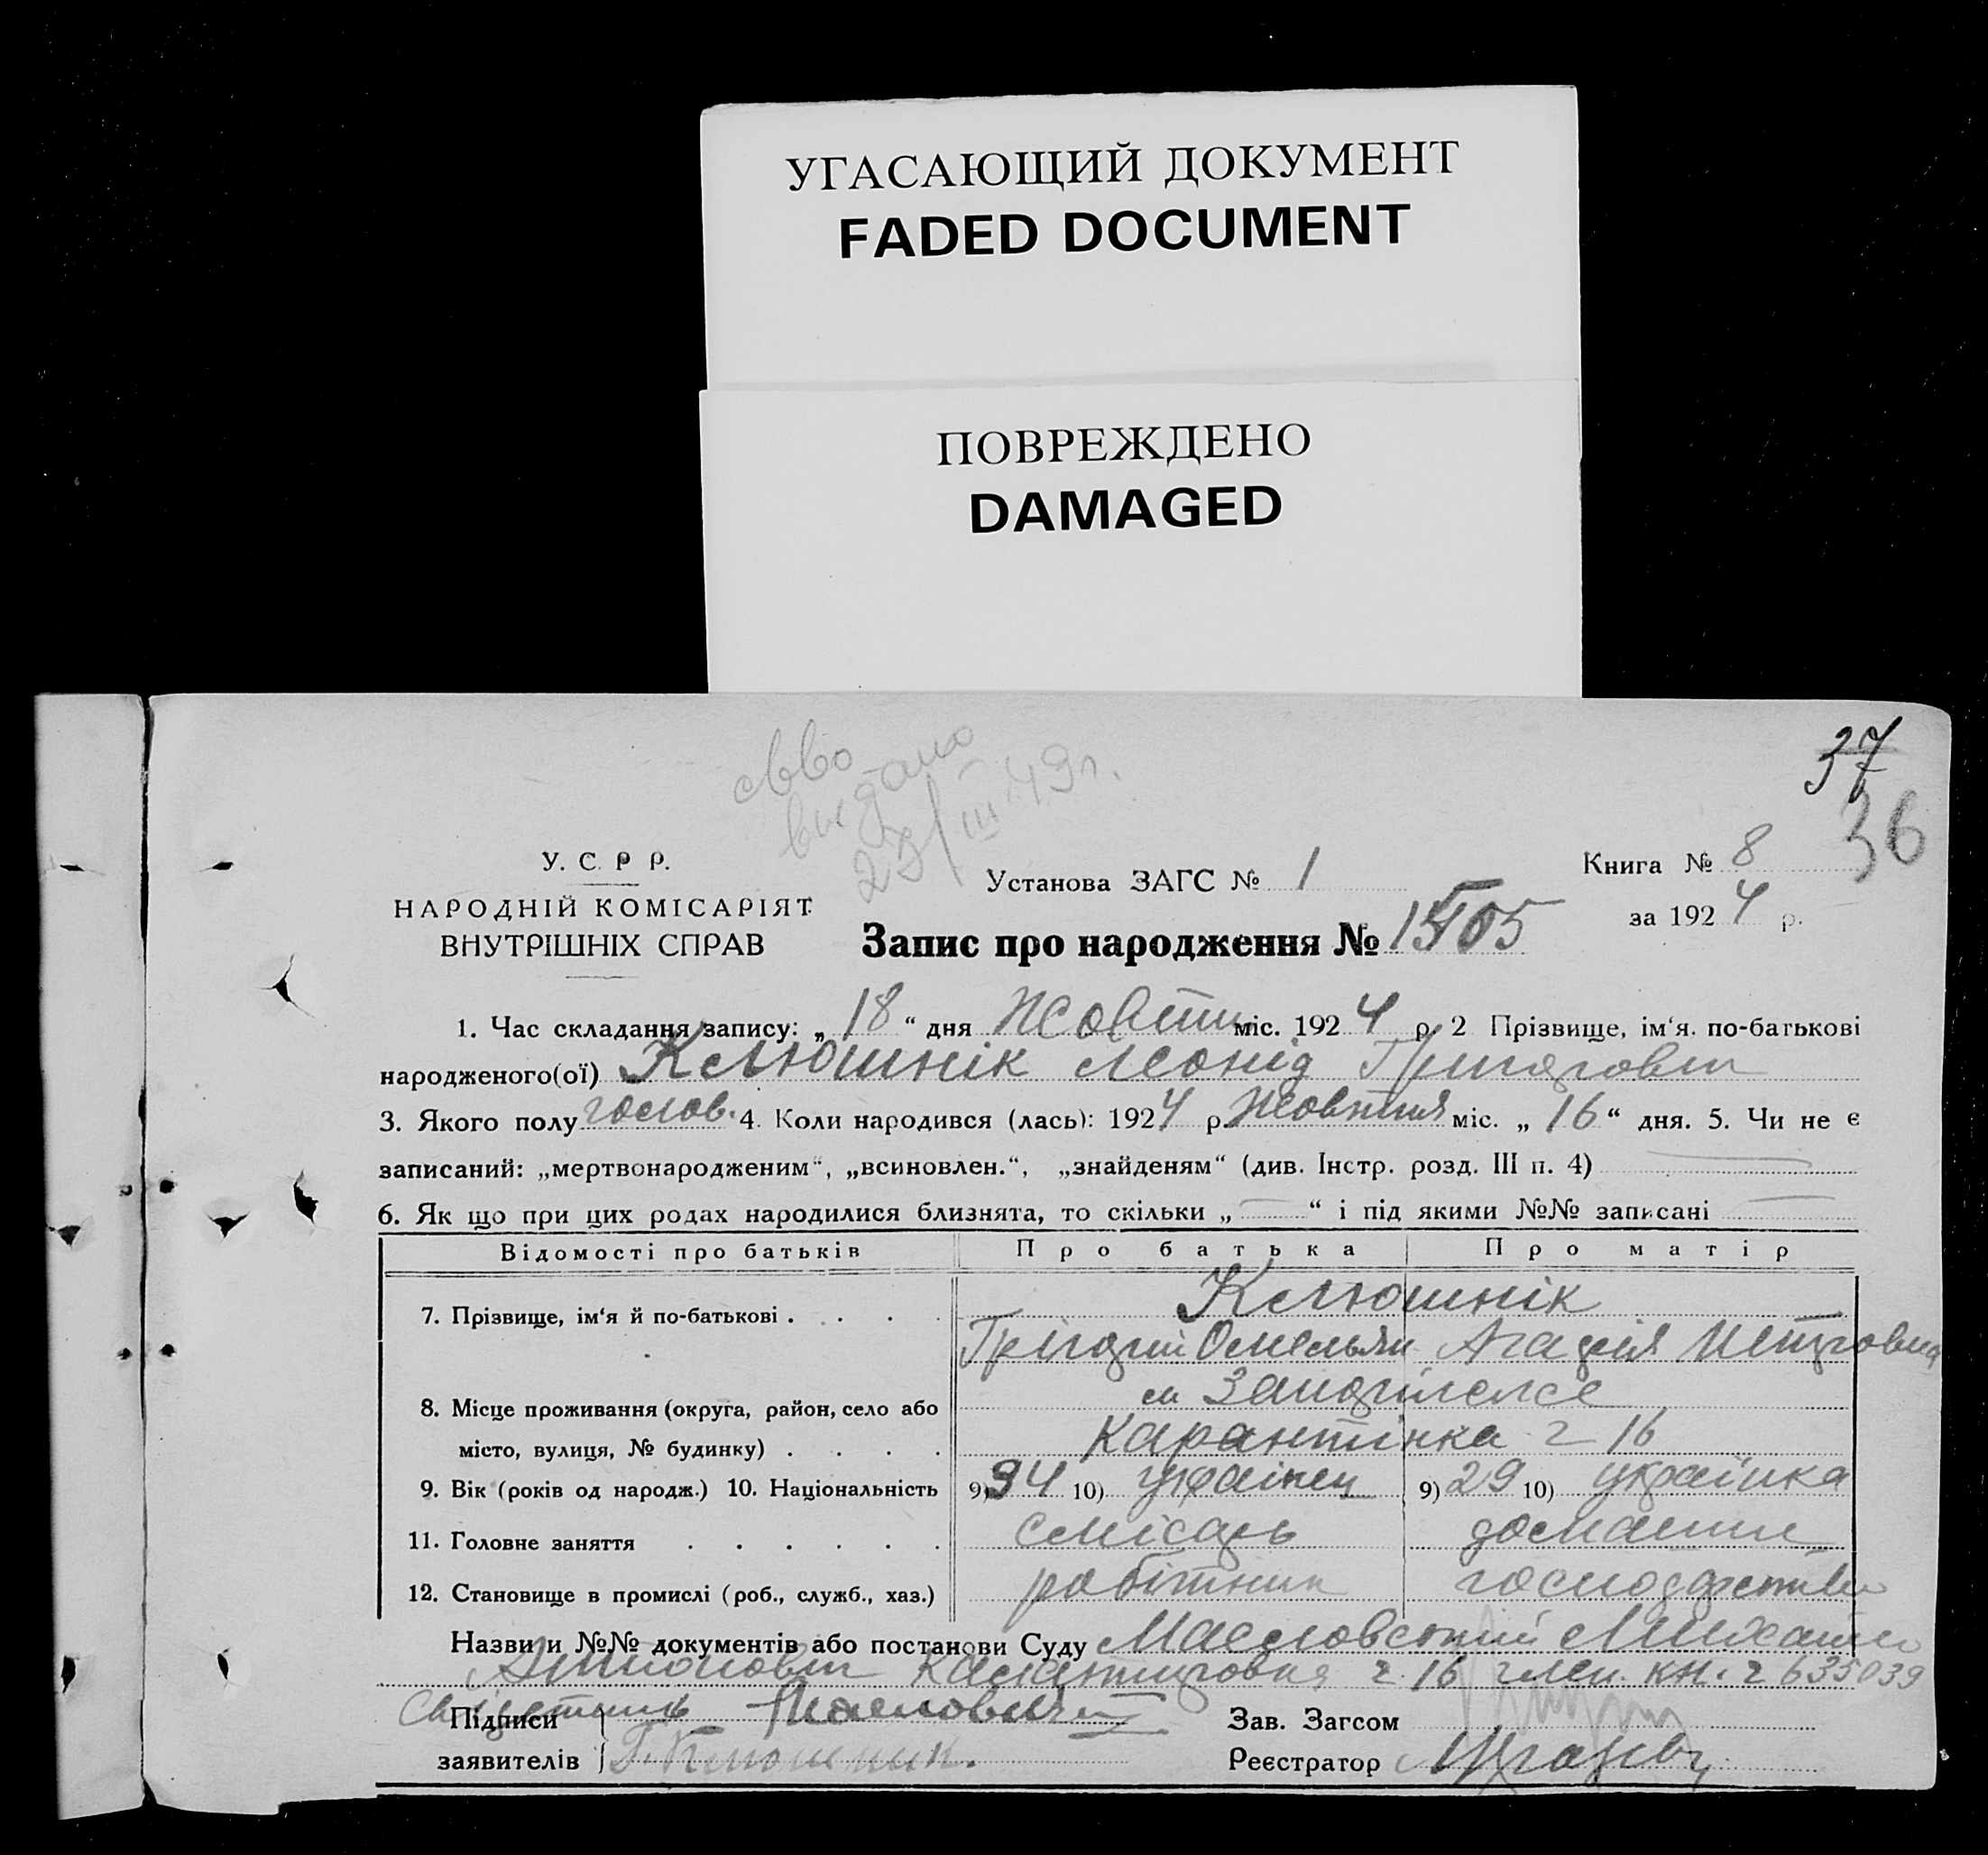 УГАСАЮЩИЙ ДОКУМЕНТ
FADED DOCUMENT
ПОВРЕЖДЕНО
DAMAGED
37
36
видано
23/III-49 г.
У. С. Р. Р.
НАРОДНІЙ КОМІСАРІЯТ
ВНУТРІШНІХ СПРАВ
Установа ЗАГС № 1
Книга № 8
за 1924 р.
Запис про народження № 1505
1. Час складання запису: „ 18 “ дня Жовтн міс. 1924 р. 2 Прізвище, ім‘я. по-батькові
народженого(ої) Клюшнік Леонід Григорович
3. Якого полу чолов. 4. Коли народився (лась): 1924 р. Жовтня міс. „ 16 “ дня. 5. Чи не є
записаний: „мертвонародженим“, „всиновлен.“, „знайденям“ (див. Інстр. розд. III п. 4)
6. Як що при цих родах народилися близнята, то скільки „ — “ і під якими №№ записані —
Відомості про батьків
Про батька
Про матір
7. Прізвище, ім‘я й по-батькові . . . .
Клюшнік
Грігорий Омельян
Петровна
8. Місце проживання (округа, район, село або
місто, вулиця, № будинку) . . . .
ст Запоріжжє
Карантінка 16
9. Вік (років од народж.) 10. Національність
9) 34 10) українец
9) 29 10) українка
11. Головне заняття . . . . . .
слюсарь
домашнє
12. Становище в промислі (роб., служб., хаз.)
робітник
господарство
Назви и №№ документів або постанови Суду Масловський Михайло
16 член. кн. 635039
Підписи
заявителів Г. Клюшник.
Зав. Загсом
Реєстратор